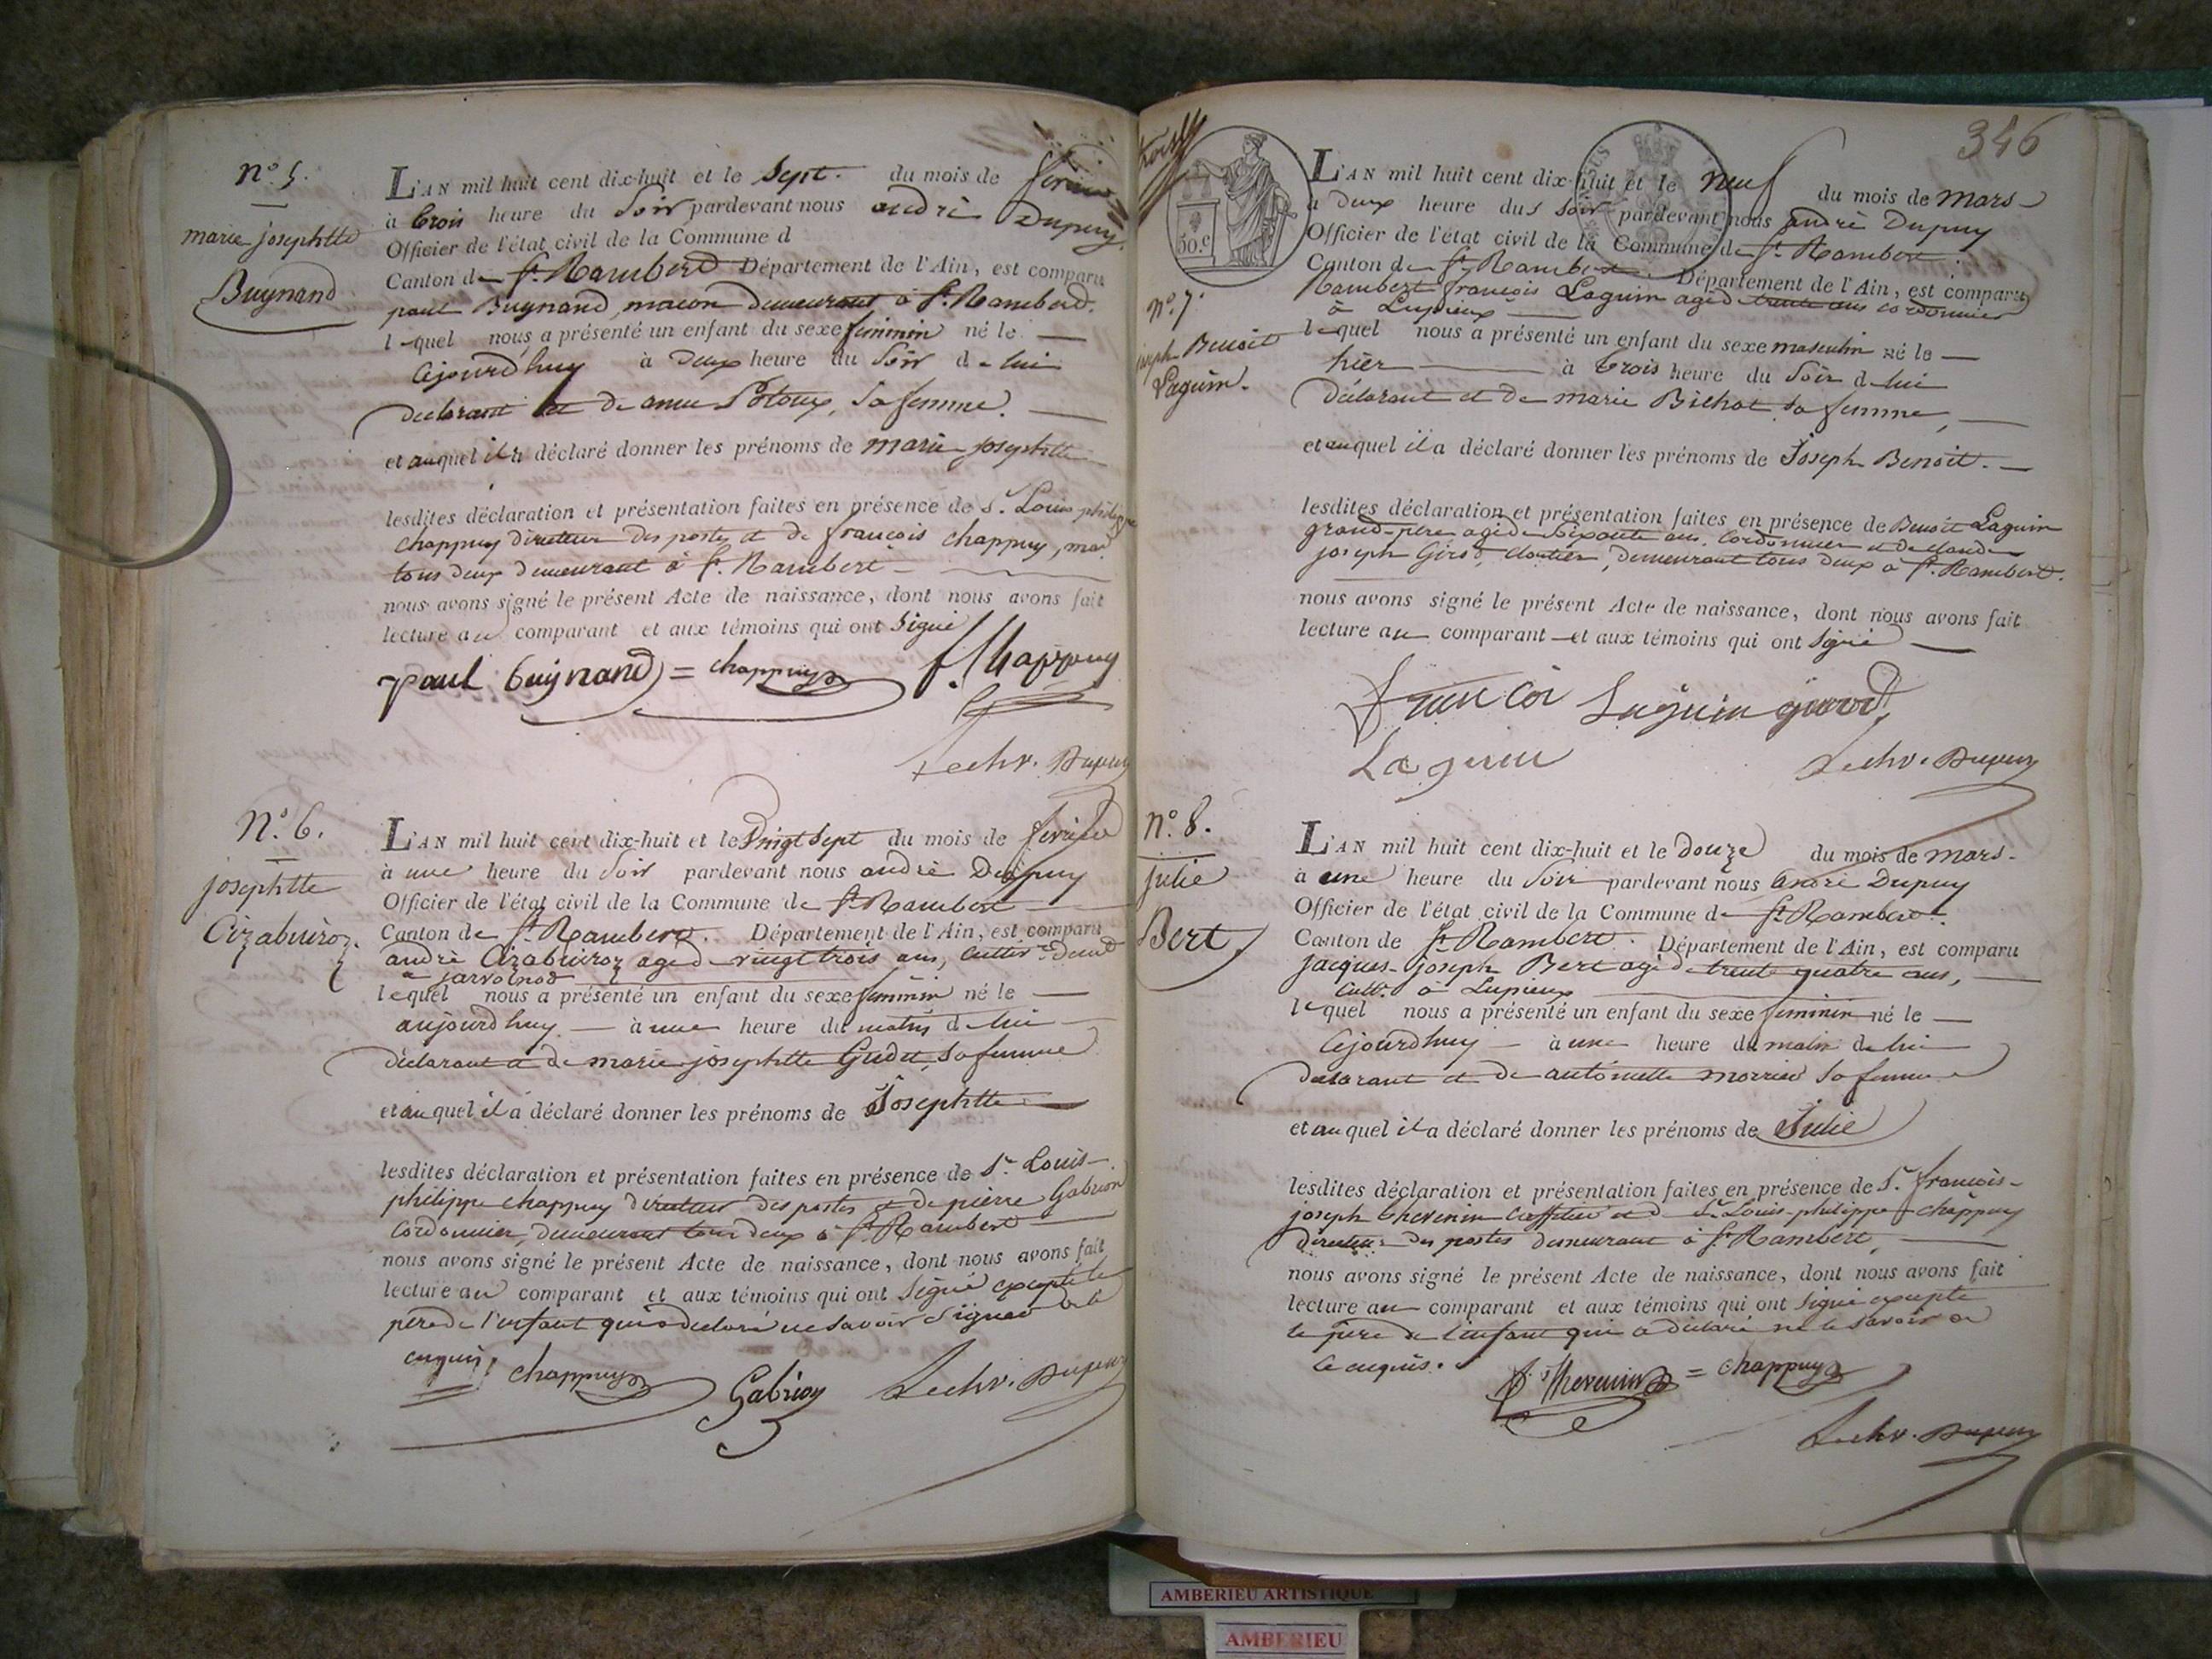 N.o 5.
marie josephtte
Buynand
L'AN mil huit cent dix-huit et le Sept. du mois de fevrier
à trois heure du Soir pardevant nous andré Dupuy
Officier de l'état civil de la Commune d
Canton de St. Rambert Département de l'Ain, est comparu
paul Buynand, macon demeurant à St. Rambert.
lequel nous a présenté un enfant du sexe feminin né le —
cejourd'huy à deux heure du Soir de lui
declarant et de anne sa femme. —
et auquel il a déclaré donner les prénoms de marie josephtte
lesdites déclaration et présentation faites en présence de Sr. Louis philippe
chappuy directeur des postes et de françois chappuy, mar.
tous deux demeurant à St. Rambert —
nous avons signé le présent Acte de naissance, dont nous avons fait
lecture au comparant et aux témoins qui ont Signé
paul buynand = chappuy f. Chappuy
Le chv. Dupuy
N.o 6.
josephtte
Cizabuiroz.
L'AN mil huit cent dix-huit et le Vingt Sept du mois de fevrier
à une heure du Soir pardevant nous andré Dupuy
Officier de l'état civil de la Commune de St. Rambert
Canton de St. Rambert. Département de l'Ain, est comparu
andré Cizabuiroz agé de vingt trois ans, cultivr. demt.
a
lequel nous a présenté un enfant du sexe feminin né le —
aujourd'huy — à une heure du matin de lui
déclarant et de marie josephtte Gudet, sa femme
et auquel il a déclaré donner les prénoms de Josephtte
lesdites déclaration et présentation faites en présence de Sr. Louis-
philippe chappuy directeur des postes et de pierre Gabrion
Cordonnier, demeurant tous deux à St. Rambert
nous avons signé le présent Acte de naissance, dont nous avons fait
lecture au comparant et aux témoins qui ont Signé excepté le
pere de l'enfant qui a declaré ne Savoir Signer de ce
enquis, chappuy Gabrion Le chv. Dupuy
346
50.c
N.o 7.
joseph Benoit
Laguin.
L'AN mil huit cent dix-huit et le Neuf du mois de mars
à deux heure du Soir pardevant nous andré Dupuy
Officier de l'état civil de la Commune de St. Rambert
Canton de St. Rambert. Département de l'Ain, est comparu
Rambert françois Laguin agé de trente ans cordonnier
à Lupieux
lequel nous a présenté un enfant du sexe masculin né le —
hier — à trois heure du Soir de lui
déclarant et de marie Bichat sa femme, —
et auquel il a déclaré donner les prénoms de Joseph Benoit. —
lesdites déclaration et présentation faites en présence de Benoit Laguin
grand-pere agé de Soixante ans Cordonnier et de claude
joseph Girod, cloutier, demeurant tous deux à St. Rambert.
nous avons signé le présent Acte de naissance, dont nous avons fait
lecture au comparant et aux témoins qui ont Signé —
francoi Laguin girod
Laguin Le chv. Dupuy
N.o 8.
julie
Bert
L'AN mil huit cent dix-huit et le douze du mois de mars-
à une heure du Soir pardevant nous andré Dupuy
Officier de l'état civil de la Commune de St. Rambert
Canton de St. Rambert. Département de l'Ain, est comparu
jacques-joseph Bert agé de trente quatre ans, —
cultr. à Lupieux
lequel nous a présenté un enfant du sexe feminin né le —
cejourd'huy — à une heure du matin de lui
declarant et de antoinette morrier sa femme
et auquel il a déclaré donner les prénoms de Julie
lesdites déclaration et présentation faites en présence de Sr. françois-
joseph thevenin et de Sr. Louis-philippe chappuy
directeur des postes demeurant à St. Rambert, —
nous avons signé le présent Acte de naissance, dont nous avons fait
lecture au comparant et aux témoins qui ont Signé excepté
le pere de l'enfant qui a déclaré ne le savoir de
ce enquis. thevenin = chappuy
Le chv. Dupuy
AMBERIEU ARTISTIQUE
AMBERIEU